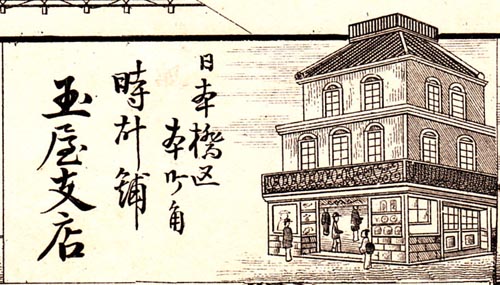 日本橋区
本町角
時計舗
玉屋支店